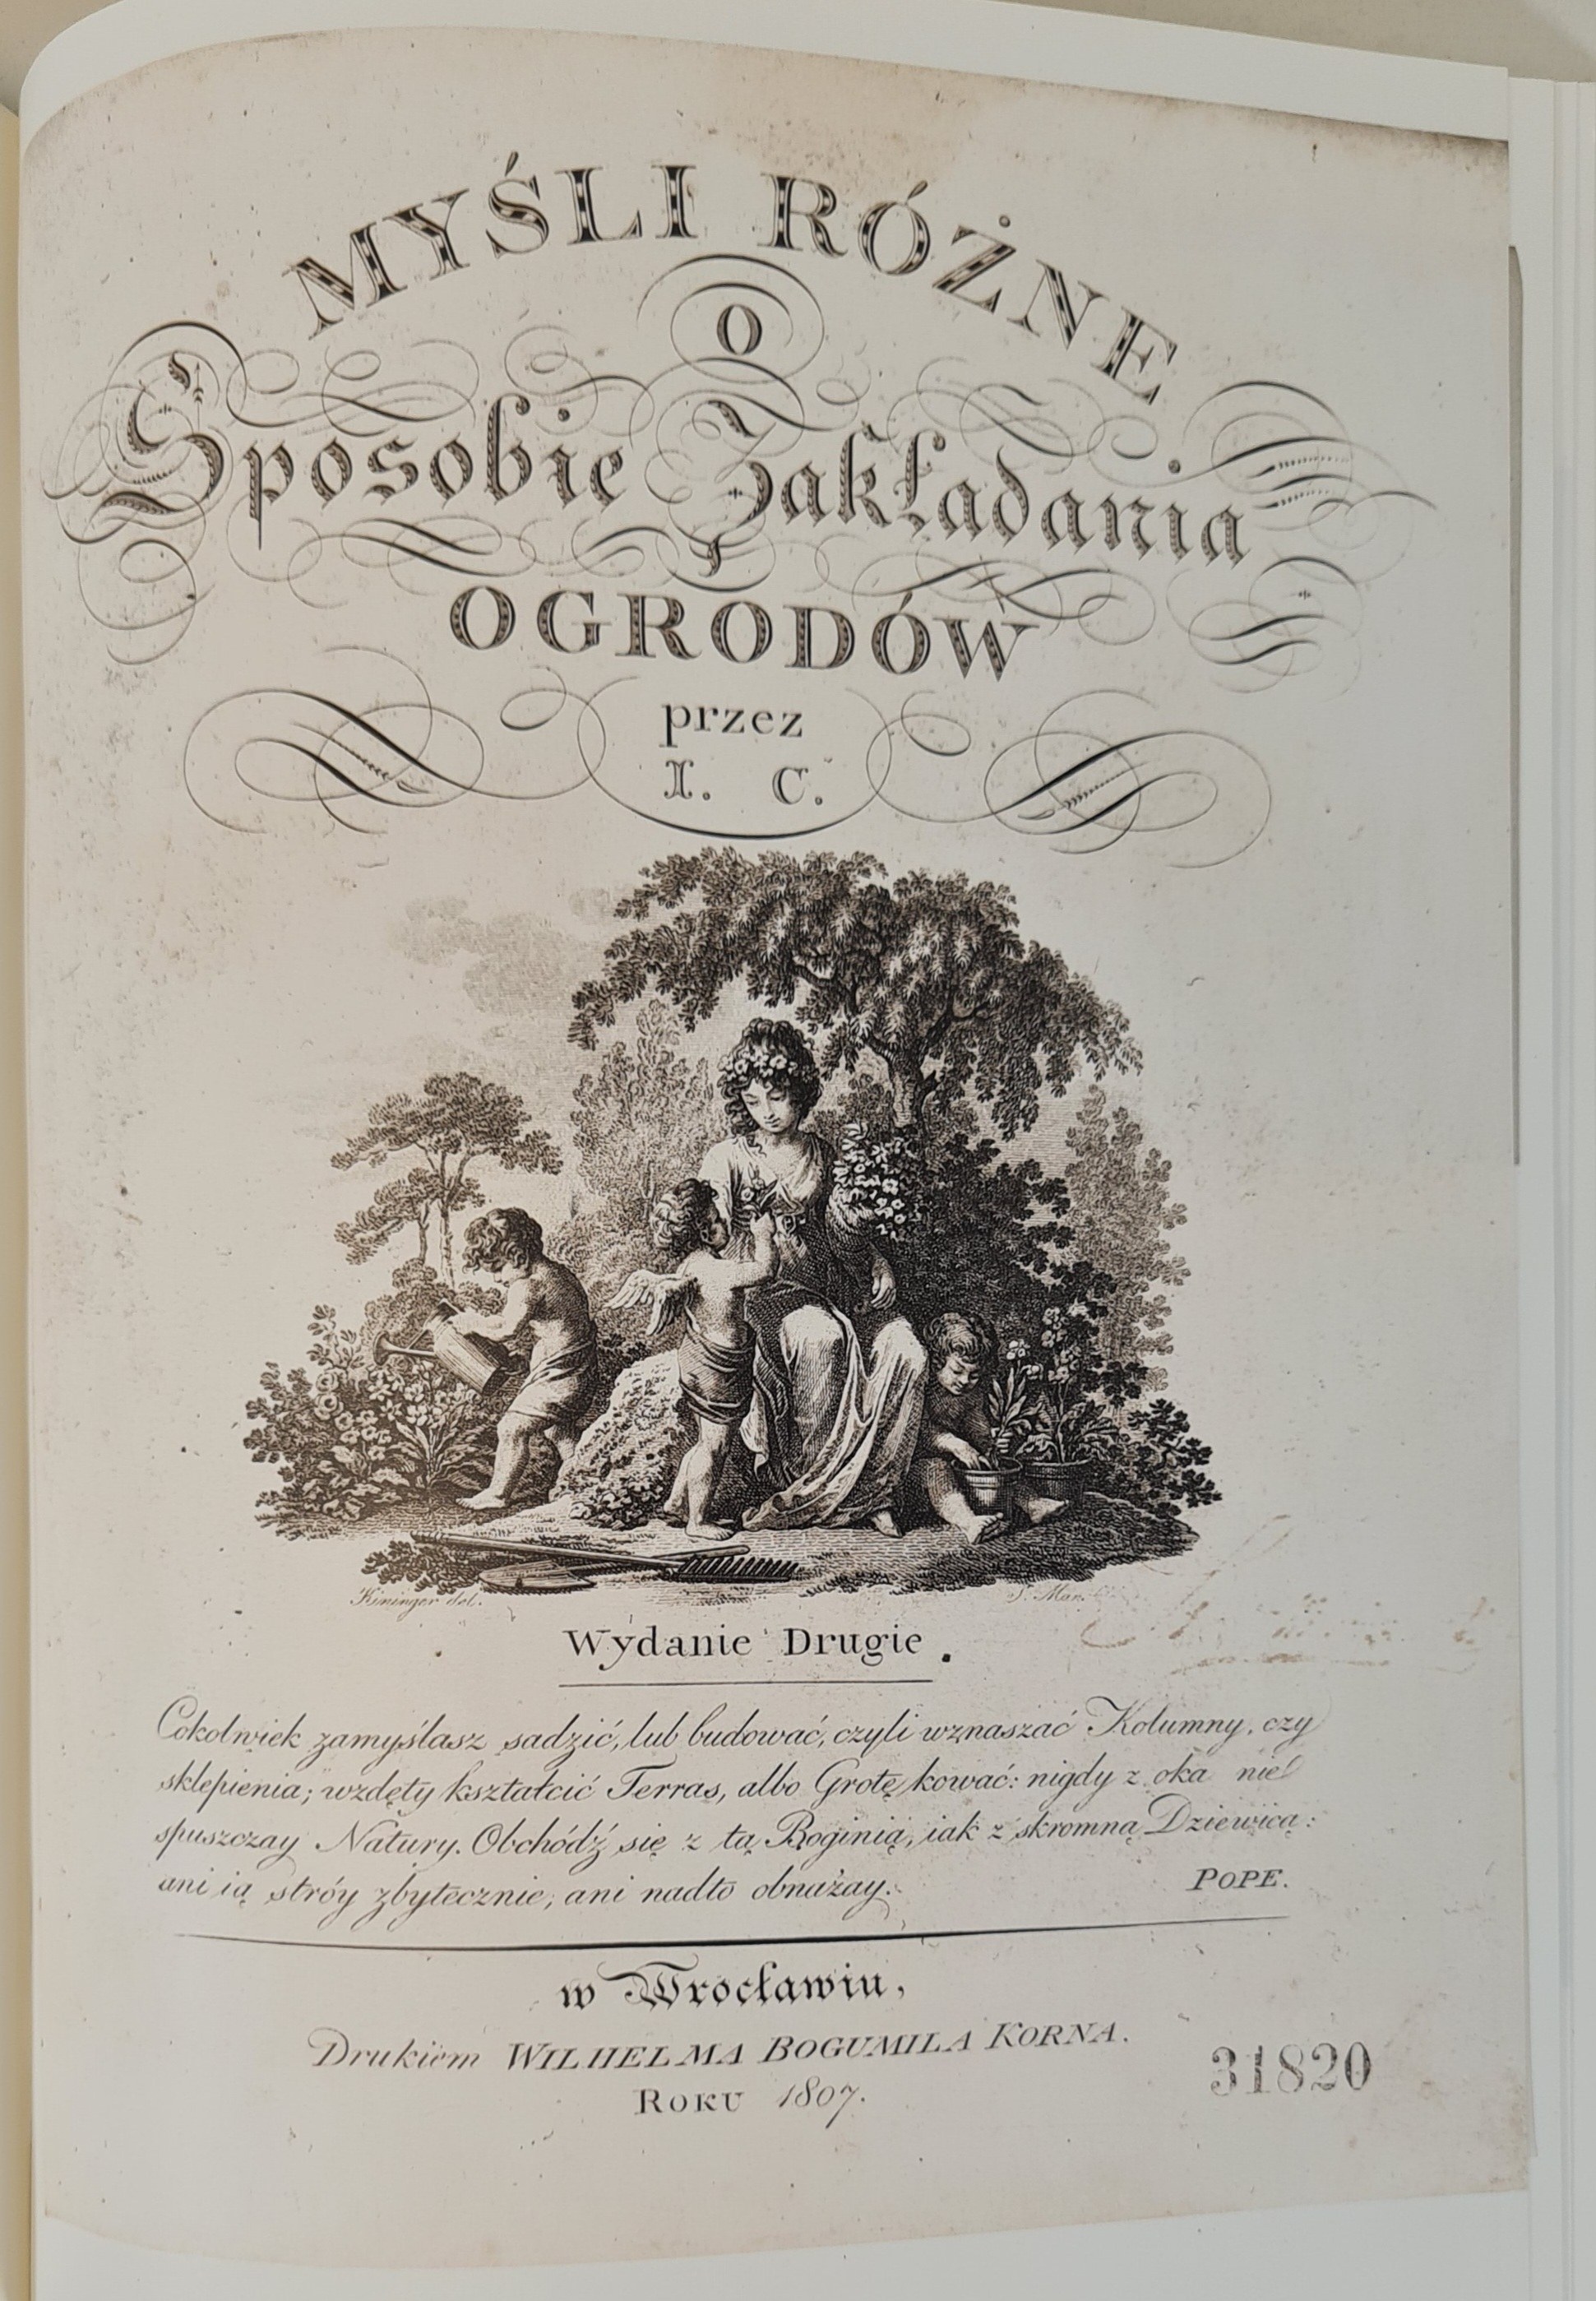 MYŚLI RÓŻNE
O
Sposobie Zakładania
OGRODÓW
przez
I. C.
Kininger del.
Wydanie Drugie.
Cokolwiek zamyślasz sadzić, lub budować, czyli wznaszać Kolumny, czy
sklepienia; wzdęty kształcić Terras, albo Grotę kować: nigdy z oka nie
spuszczay Natury. Obchódź się z tą Boginią, iak z skromną Dziewicą:
ani ią stróy zbytecznie, ani nadto obnażay.
POPE.
w Wrocławiu,
Drukiem WILHELMA BOGUMILA KORNA.
ROKU 1807.
31820